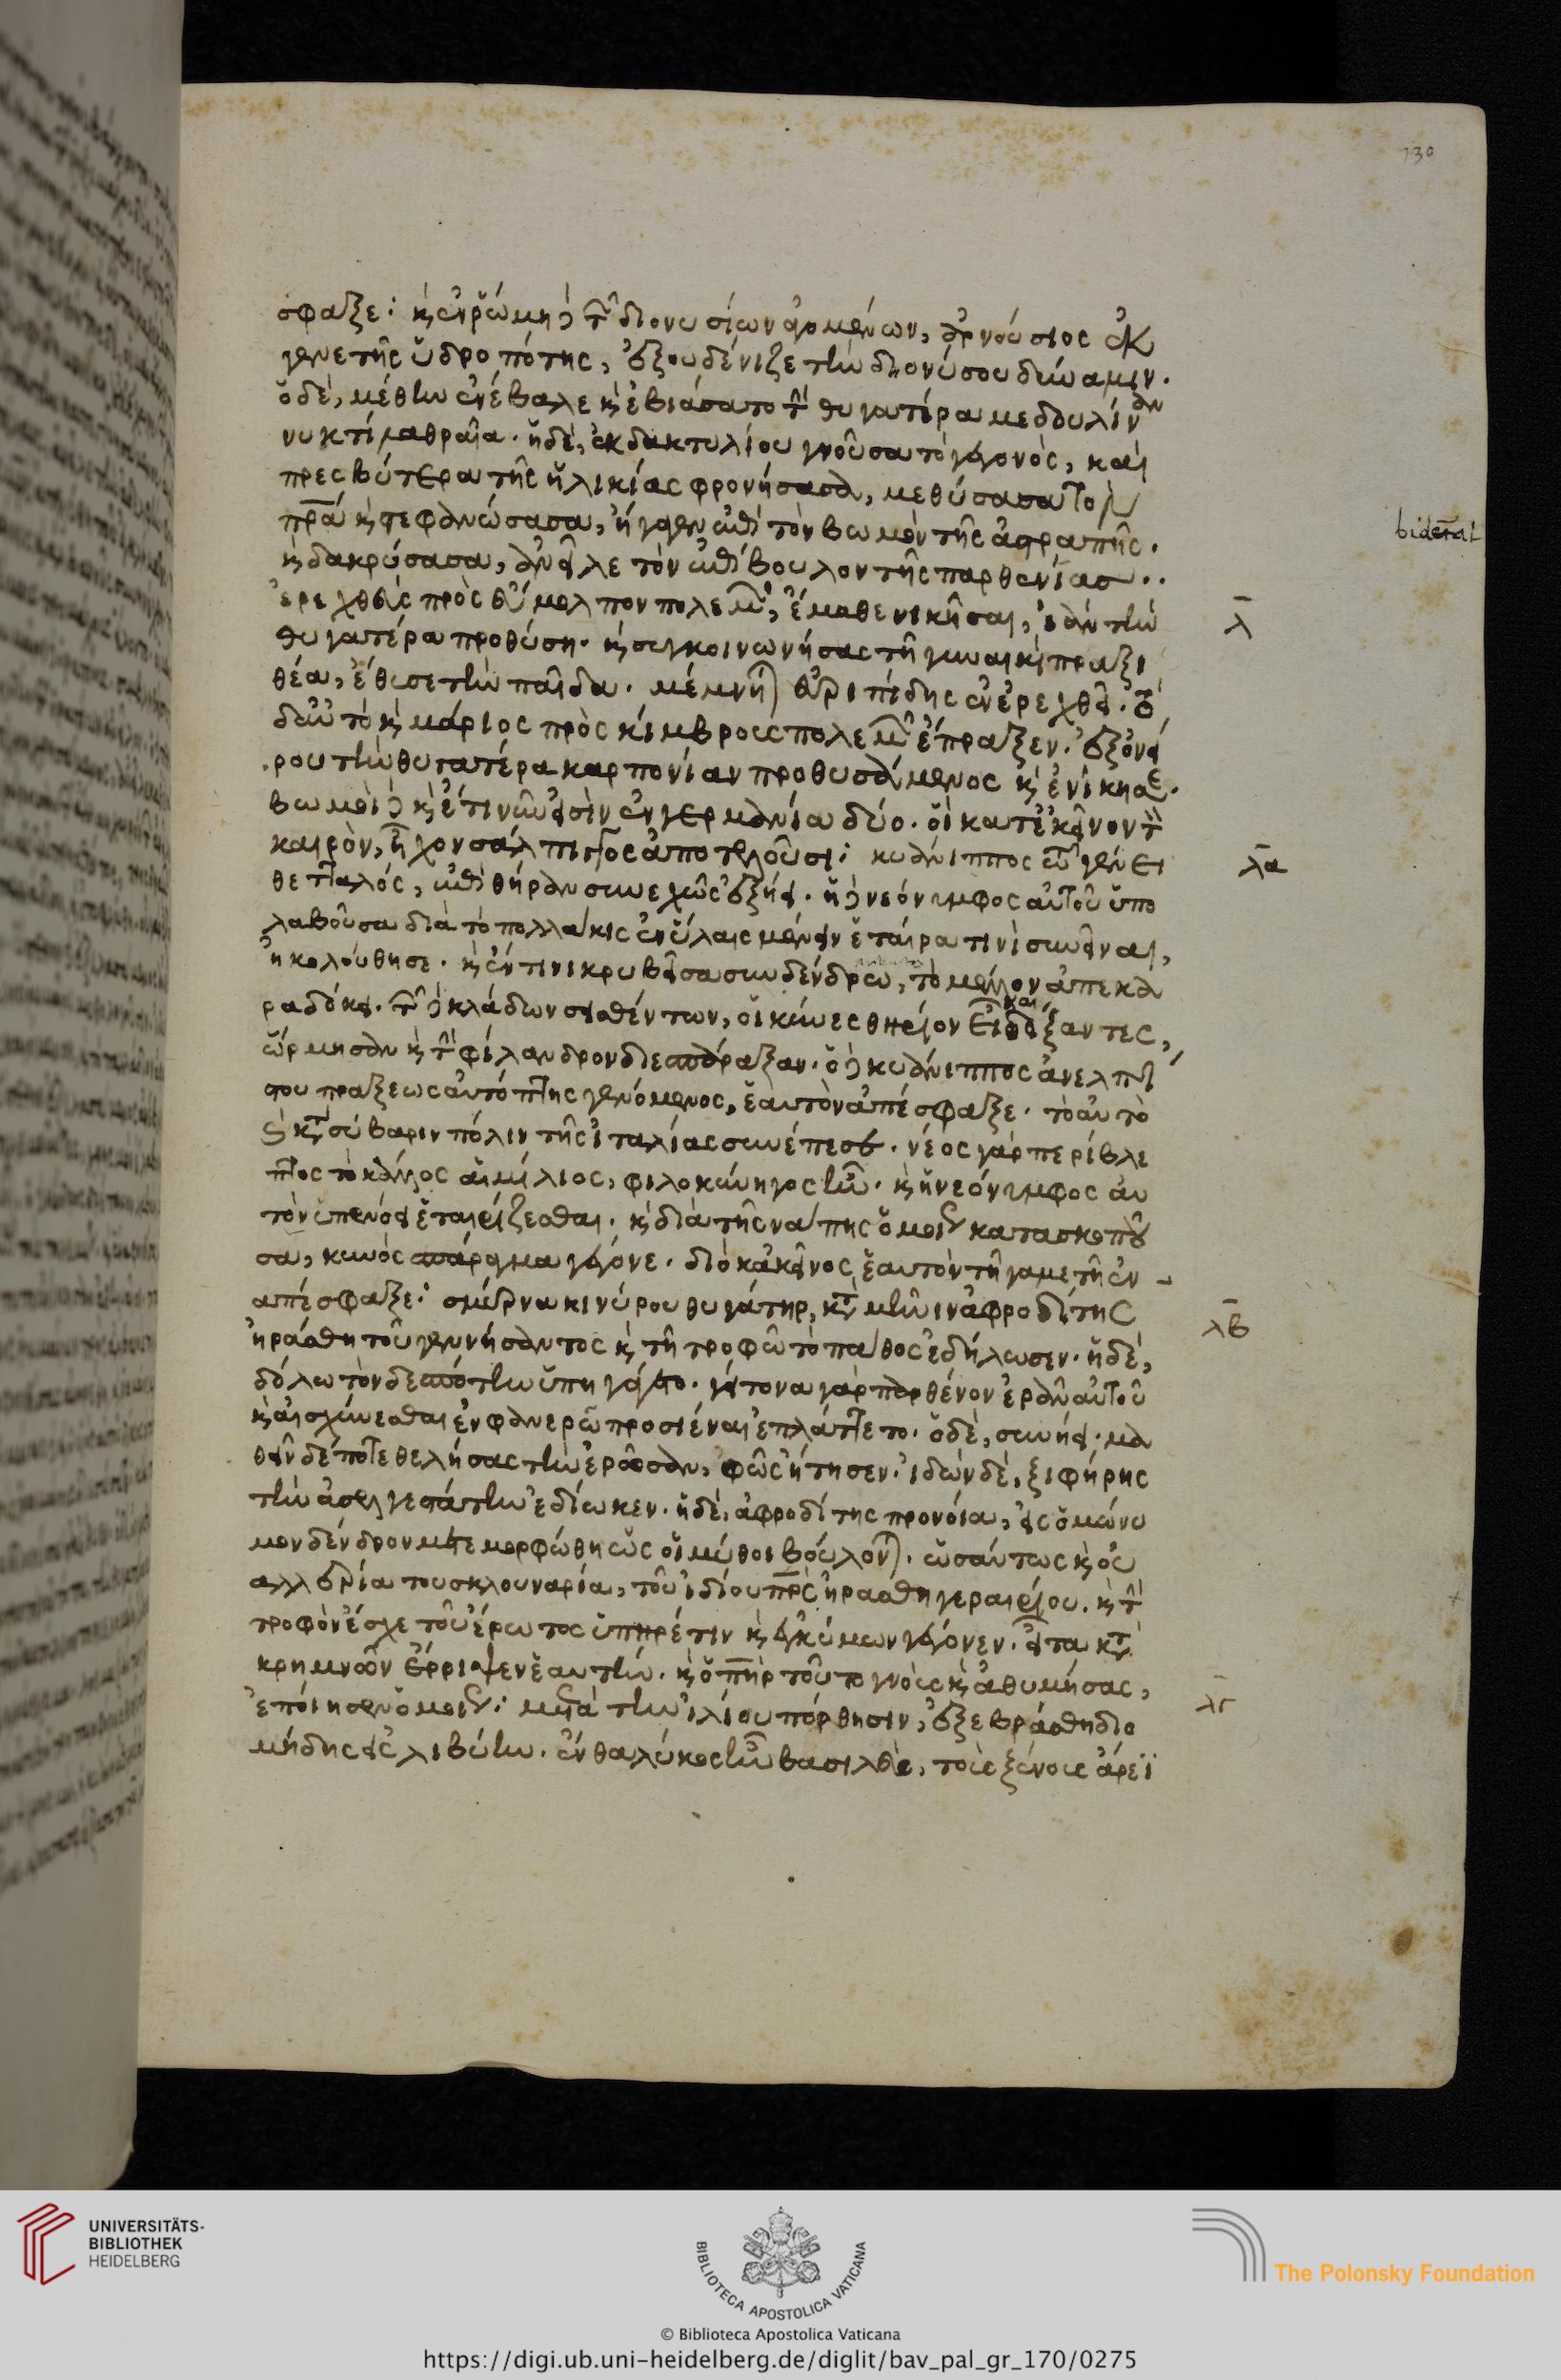 130
σφαξε: καὶ ἐν ῥώμη δὲ τῶν διονυσίων ἀγομένων, ἀρνούσιος ἐκ
γενετῆς ὑδροπότης, ἐξουδένιζε τὴν διονύσου δύναμιν.
ὁ δὲ, μέθην ἐνέβαλε καὶ ἐβιάσατο τὴν θυγατέρα μεδδυλίναν
νυκτὶ λαθραῖα. ἡ δὲ, ἐκ δακτυλίου γνοῦσα τὸ γεγονὸς, καὶ
πρεσβύτερα τῆς ἡλικίας φρονήσασα, μεθύσασα τὸν
πρα καὶ στεφανώσασα, ἤγαγεν ἐπὶ τὸν βωμὸν τῆς ἀστραπῆς.
bidental
καὶ δακρύσασα, ἀνεῖλε τὸν ἐπίβουλον τῆς παρθενίασ..
ἐρεχθεὺς πρὸς εὔμολπον πολεμῶν, ἔμαθε νικῆσαι, ἐὰν τὴν
λ
θυγατέρα προθύση. καὶ συγκοινωνήσας τῆ γυναικὶ πραξι
θέα, ἔθυσε τὴν παῖδα. μέμνηται εὐριπίδης ἐν ἐρεχθεῖ. τὸ
δ' αὐτὸ καὶ μάριος πρὸς κίμβρους πολεμῶν ἔπραξεν. ἐξ ὀνεί
ρου τὴν θυγατέρα καρπονίαν προθυσάμενος καὶ ἐνίκησε.
βωμοὶ δὲ καὶ ἔτι νῦν εἰσὶν ἐν γερμανία δύο. οἳ κατ' ἐκεῖνον τὸν
καιρὸν, ἦχον σάλπιγγος ἀποτελοῦσι: κυάνιππος τῶ γένει
λα
θετταλός, ἐπὶ θήραν συνεχῶς ἐξήει. ἡ δὲ νεόνυμφος αὐτοῦ ὑπο
λαβοῦσα διὰ τὸ πολλάκις ἐν ὕλαις μένειν ἑταίρα τινὶ συνεῖναι,
ἠκολούθησε. καὶ ἔν τινι κρυβεῖσα συνδένδρω, τὸ μέλλον ἀπεκα
ραδόκει. τῶν δὲ κλάδων σεισθέντων, οἱ κύνες θηρίον εἶναι δόξαντες,
ὥρμησαν καὶ τὴν φίλανδρον διεσπάραξαν. ὁ δὲ κυάνιππος ἀνελπί
στου πράξεως αὐτόπτης γενόμενος, ἑαυτὸν ἀπέσφαξε. τὸ αὐτὸ
καὶ κατὰ σύβαριν πόλιν τῆς ἰταλίας συνέπεσε. νέος γὰρ περίβλε
πτος τὸ κάλλος αἰμίλιος, φιλοκύνηγος ἦν. καὶ ἡ νεόνυμφος αὐ
τὸν ὑπενόει ἑταιρίζεσθαι. καὶ διὰ τῆς νάπης ὁμοίως κατασκοποῦ
σα, κυνὸς σπάραγμα γέγονε. διὸ κἀκεῖνος ἑαυτὸν τῆ γαμετῆ ἐν
απέσφαξε: σμύρνα κινύρου θυγάτηρ, κατὰ μῆνιν ἀφροδίτης
λβ
ἠράσθη τοῦ γεννήσαντος καὶ τῆ τροφῶ τὸ πάθος ἐδήλωσεν. ἡ δὲ,
δόλω τὸν δεσπότην ὑπηγάγετο. γείτονα γὰρ παρθένον ἐρᾶν αὐτοῦ
καὶ αἰσχύνεσθαι ἐν φανερῶ προσιέναι ἐπλάττετο. ὁ δὲ, συνήει. μα
θεῖν δέ ποτε θελήσας τὴν ἐρῶσαν, φῶς ἤτησεν. ἰδὼν δὲ, ξιφήρης
τὴν ἀσελγεστάτην ἐδίωκεν. ἡ δὲ, ἀφροδίτης προνοία, εἰς ὁμώνυ
μον δένδρον μετεμορφώθη ὡς οἱ μῦθοι βούλονται. ὡσαύτως καὶ οὐ
αλλερία τουσκλουναρία, τοῦ ἰδίου πρς ἠράσθη γεραιρίου. καὶ τὴν
τροφὸν ἔσχε τοῦ ἔρωτος ὑπηρέτιν καὶ ἐγκύμων γέγονεν. εἶτα κατὰ
κρημνῶν ἔρριψεν ἑαυτήν. καὶ ὁ πηρ τοῦτο γνοὺς καὶ ἀθυμήσας,
ἐποίησεν ὁμοίως: μετὰ τὴν ἰλίου πόρθησιν, ἐξεβράσθη διο
λγ
μήδης εἰς λιβύην. ἔνθα λύκος ἦν βασιλεὺς, τοὺς ξένους ἄρεϊ
UNIVERSITÄTS-
BIBLIOTHEK
HEIDELBERG
BIBLIOTECA APOSTOLICA VATICANA
The Polonsky Foundation
© Biblioteca Apostolica Vaticana
https://digi.ub.uni-heidelberg.de/diglit/bav_pal_gr_170/0275